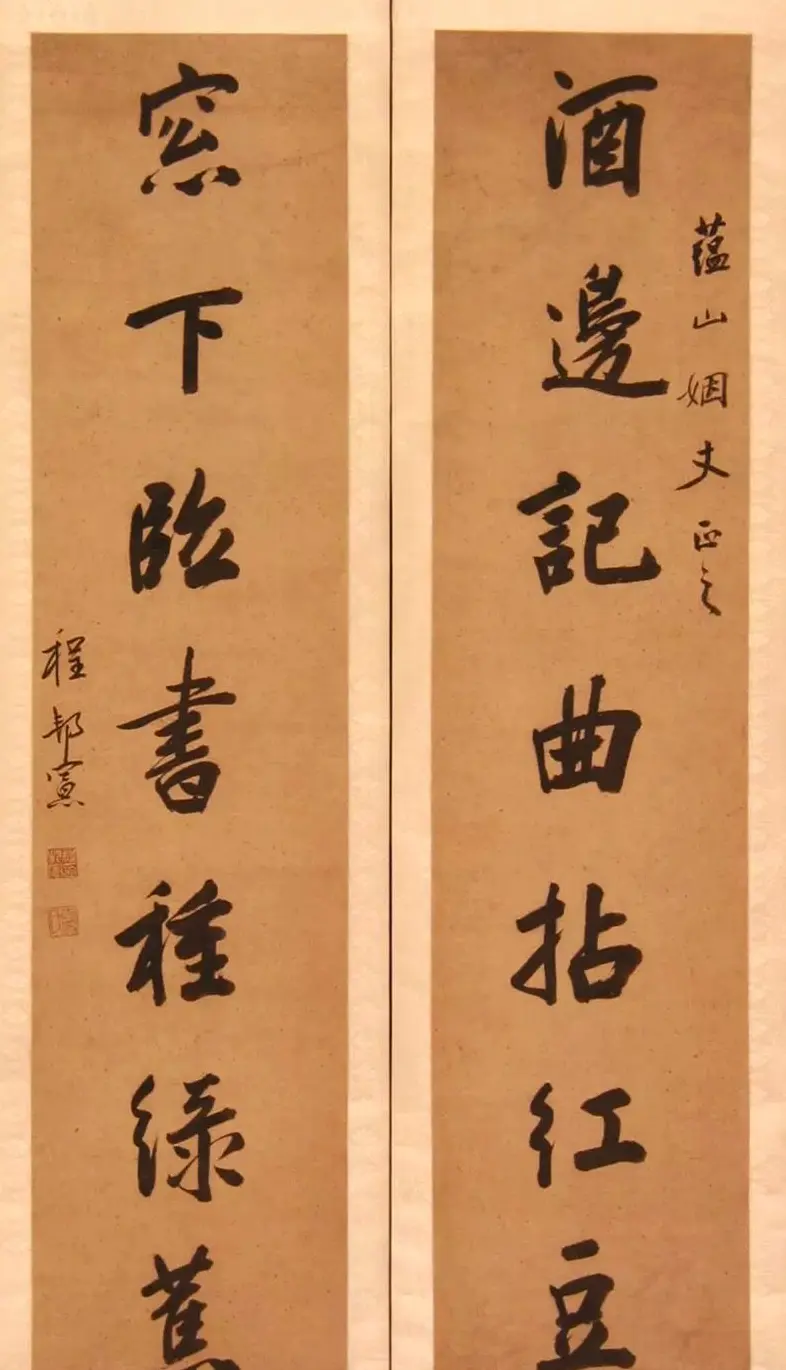 蘊山姻丈正之
酒邊記曲拈紅豆
窓下臨書種綠蕉
程邦憲